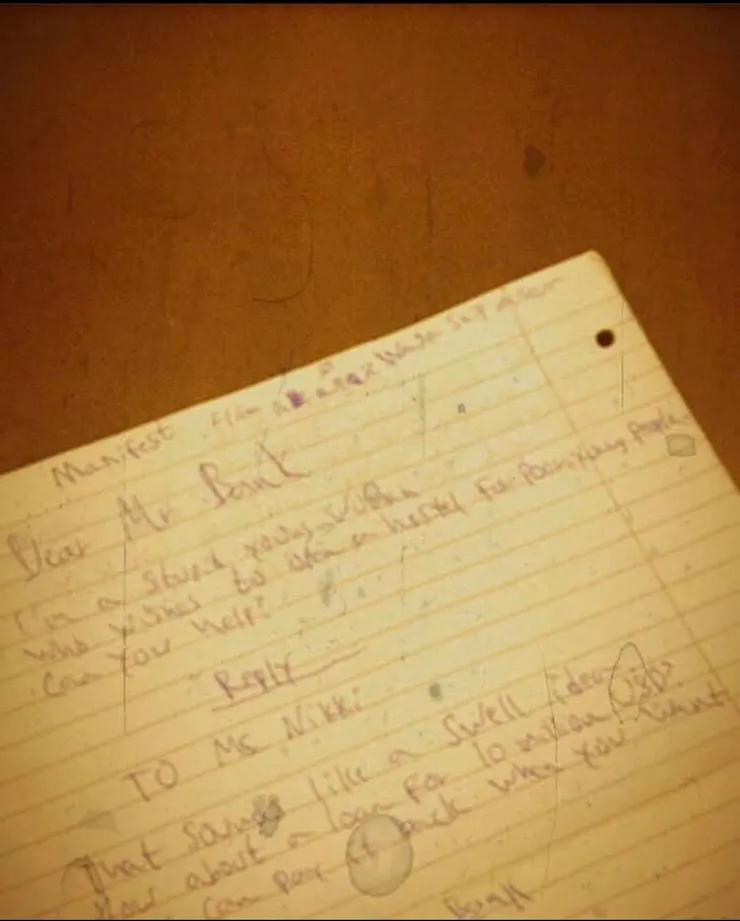 Manifest
Dear Mr Bank
I'm a stupid young woman
who wishes to open a hostel for poor young people
Can you help?
Reply
TO Ms Nikki
That sounds like a swell idea
How about a loan for 10 million USD?
can pay it back when you want
Bank